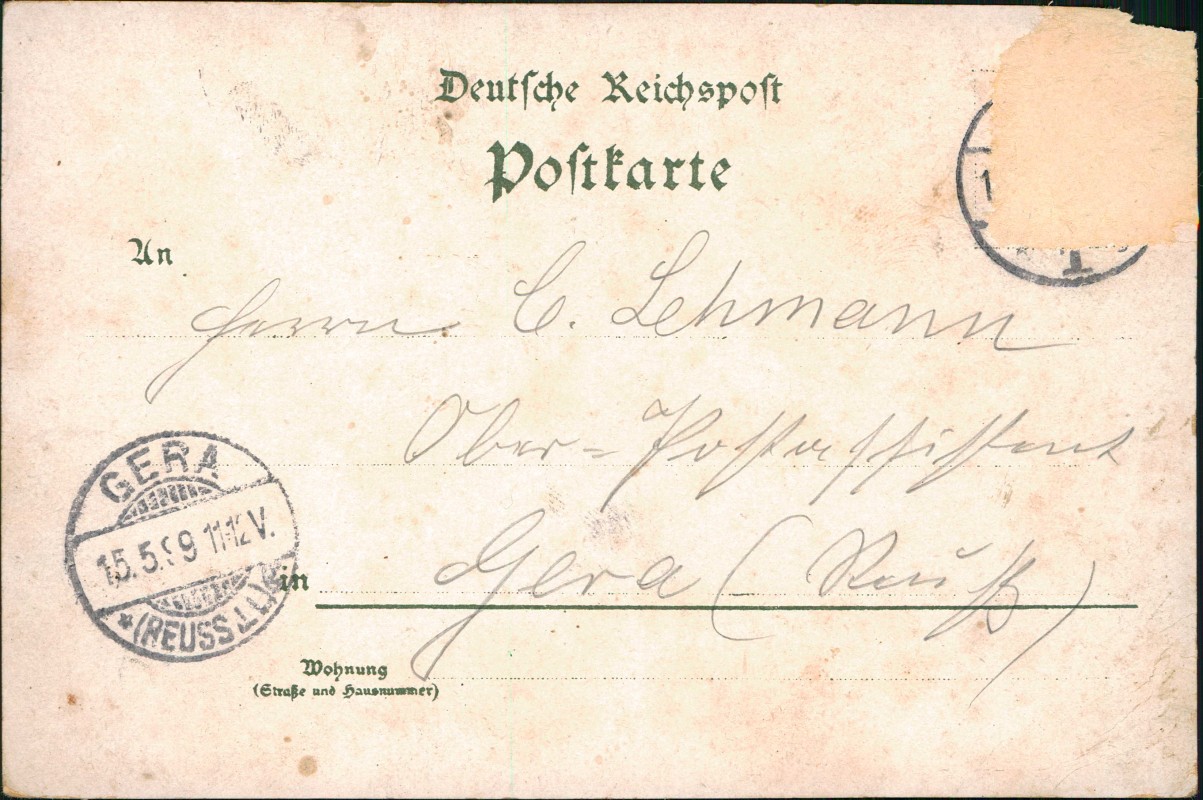 Deutsche Reichspost
Postkarte
An
Herrn C. Lehmann
Ober-Postassistent
in Gera (Reuß)
Wohnung
(Straße und Hausnummer)
GERA
15.5.99 11-12 V.
* (REUSS J.L.)
1